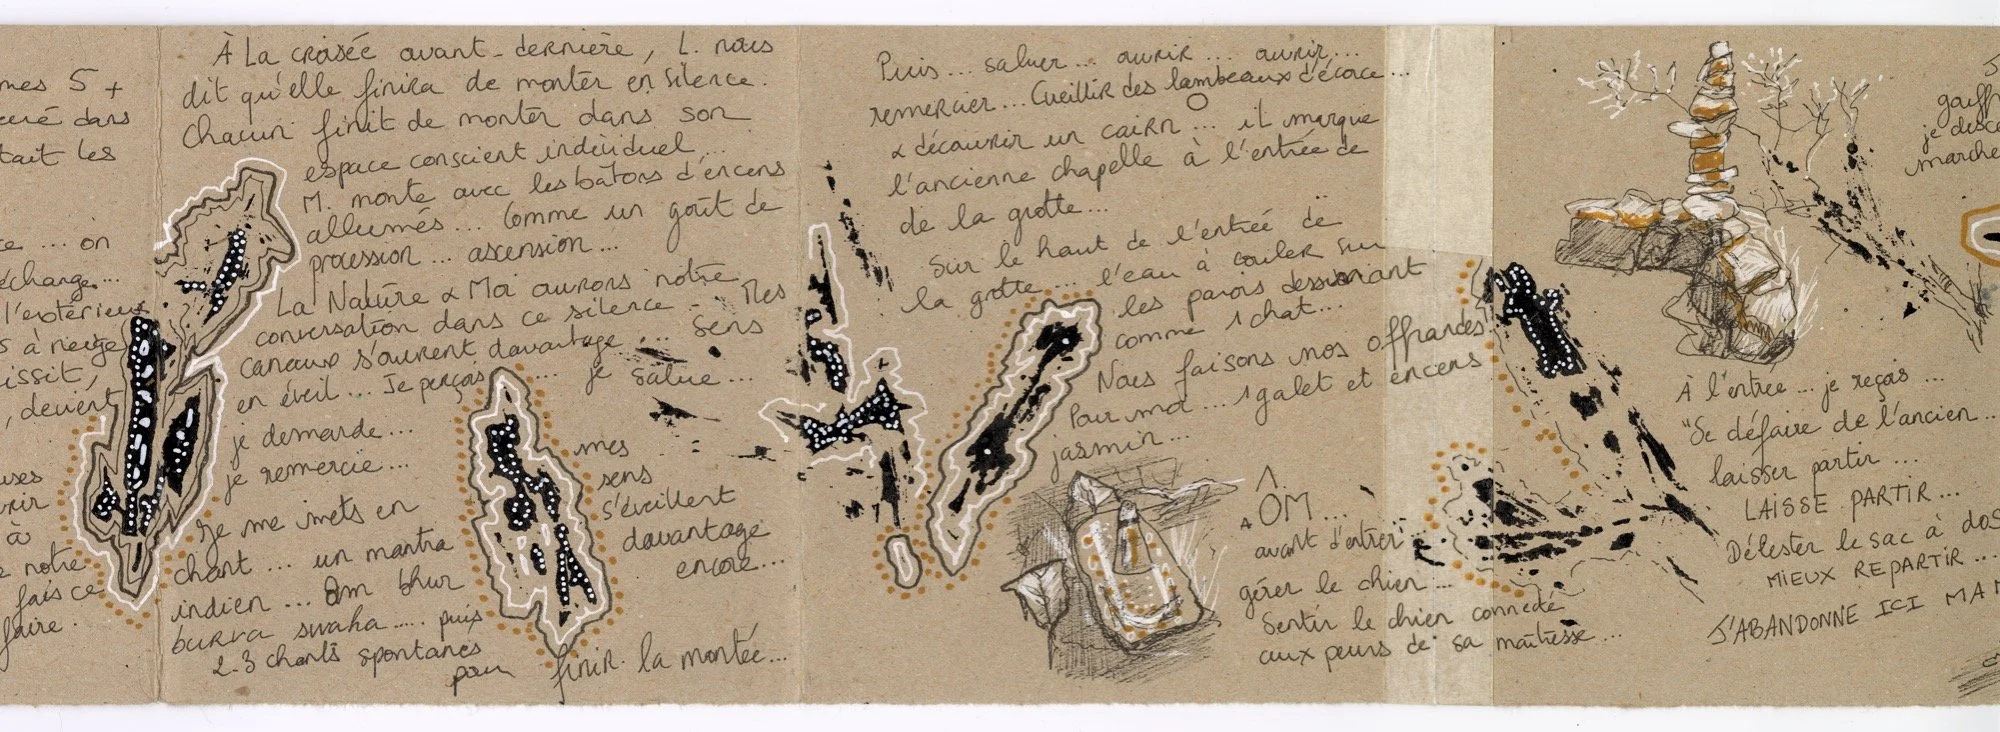 mes 5 +
dans
tait les
... on
échange...
l'extérieur
à neige
issit,
, devient
uses
à
notre
fais ce
faire.
À La croisée avant-dernière, L. nous
dit qu'elle finira de monter en silence.
Chacun finit de monter dans son
espace conscient individuel...
M. monte avec les bâtons d'encens
allumés... Comme un goût de
procession... ascension...
La Nature & Moi aurons notre
conversation dans ce silence... Mes
canaux s'ouvrent davantage... Sens
en éveil... Je perçois... je salue...
je demande...
je remercie...
Je me mets en
chant... un mantra
indien... Om bhur
burva swaha..... puis
2-3 chants spontanés
pour finir la montée...
mes
sens
s'éveillent
davantage
encore...
Puis... saluer... ouvrir... ouvrir...
remercier... Cueillir des lambeaux d'écorce...
& découvrir un cairn... il marque
l'ancienne chapelle à l'entrée de
de la grotte...
Sur le haut de l'entrée de
la grotte... l'eau a couler sur
les parois dessinant
comme 1 chat...
Nous faisons nos offrandes
Pour moi... 1 galet et encens
jasmin...
ÔM...
avant d'entrer
gérer le chien...
Sentir le chien connecté
aux peurs de sa maîtresse...
À l'entrée... je reçois...
"Se défaire de l'ancien...
laisser partir...
LAISSE PARTIR...
Délester le sac à dos
MIEUX REPARTIR...
J'ABANDONNE ICI MA
je desc
marche